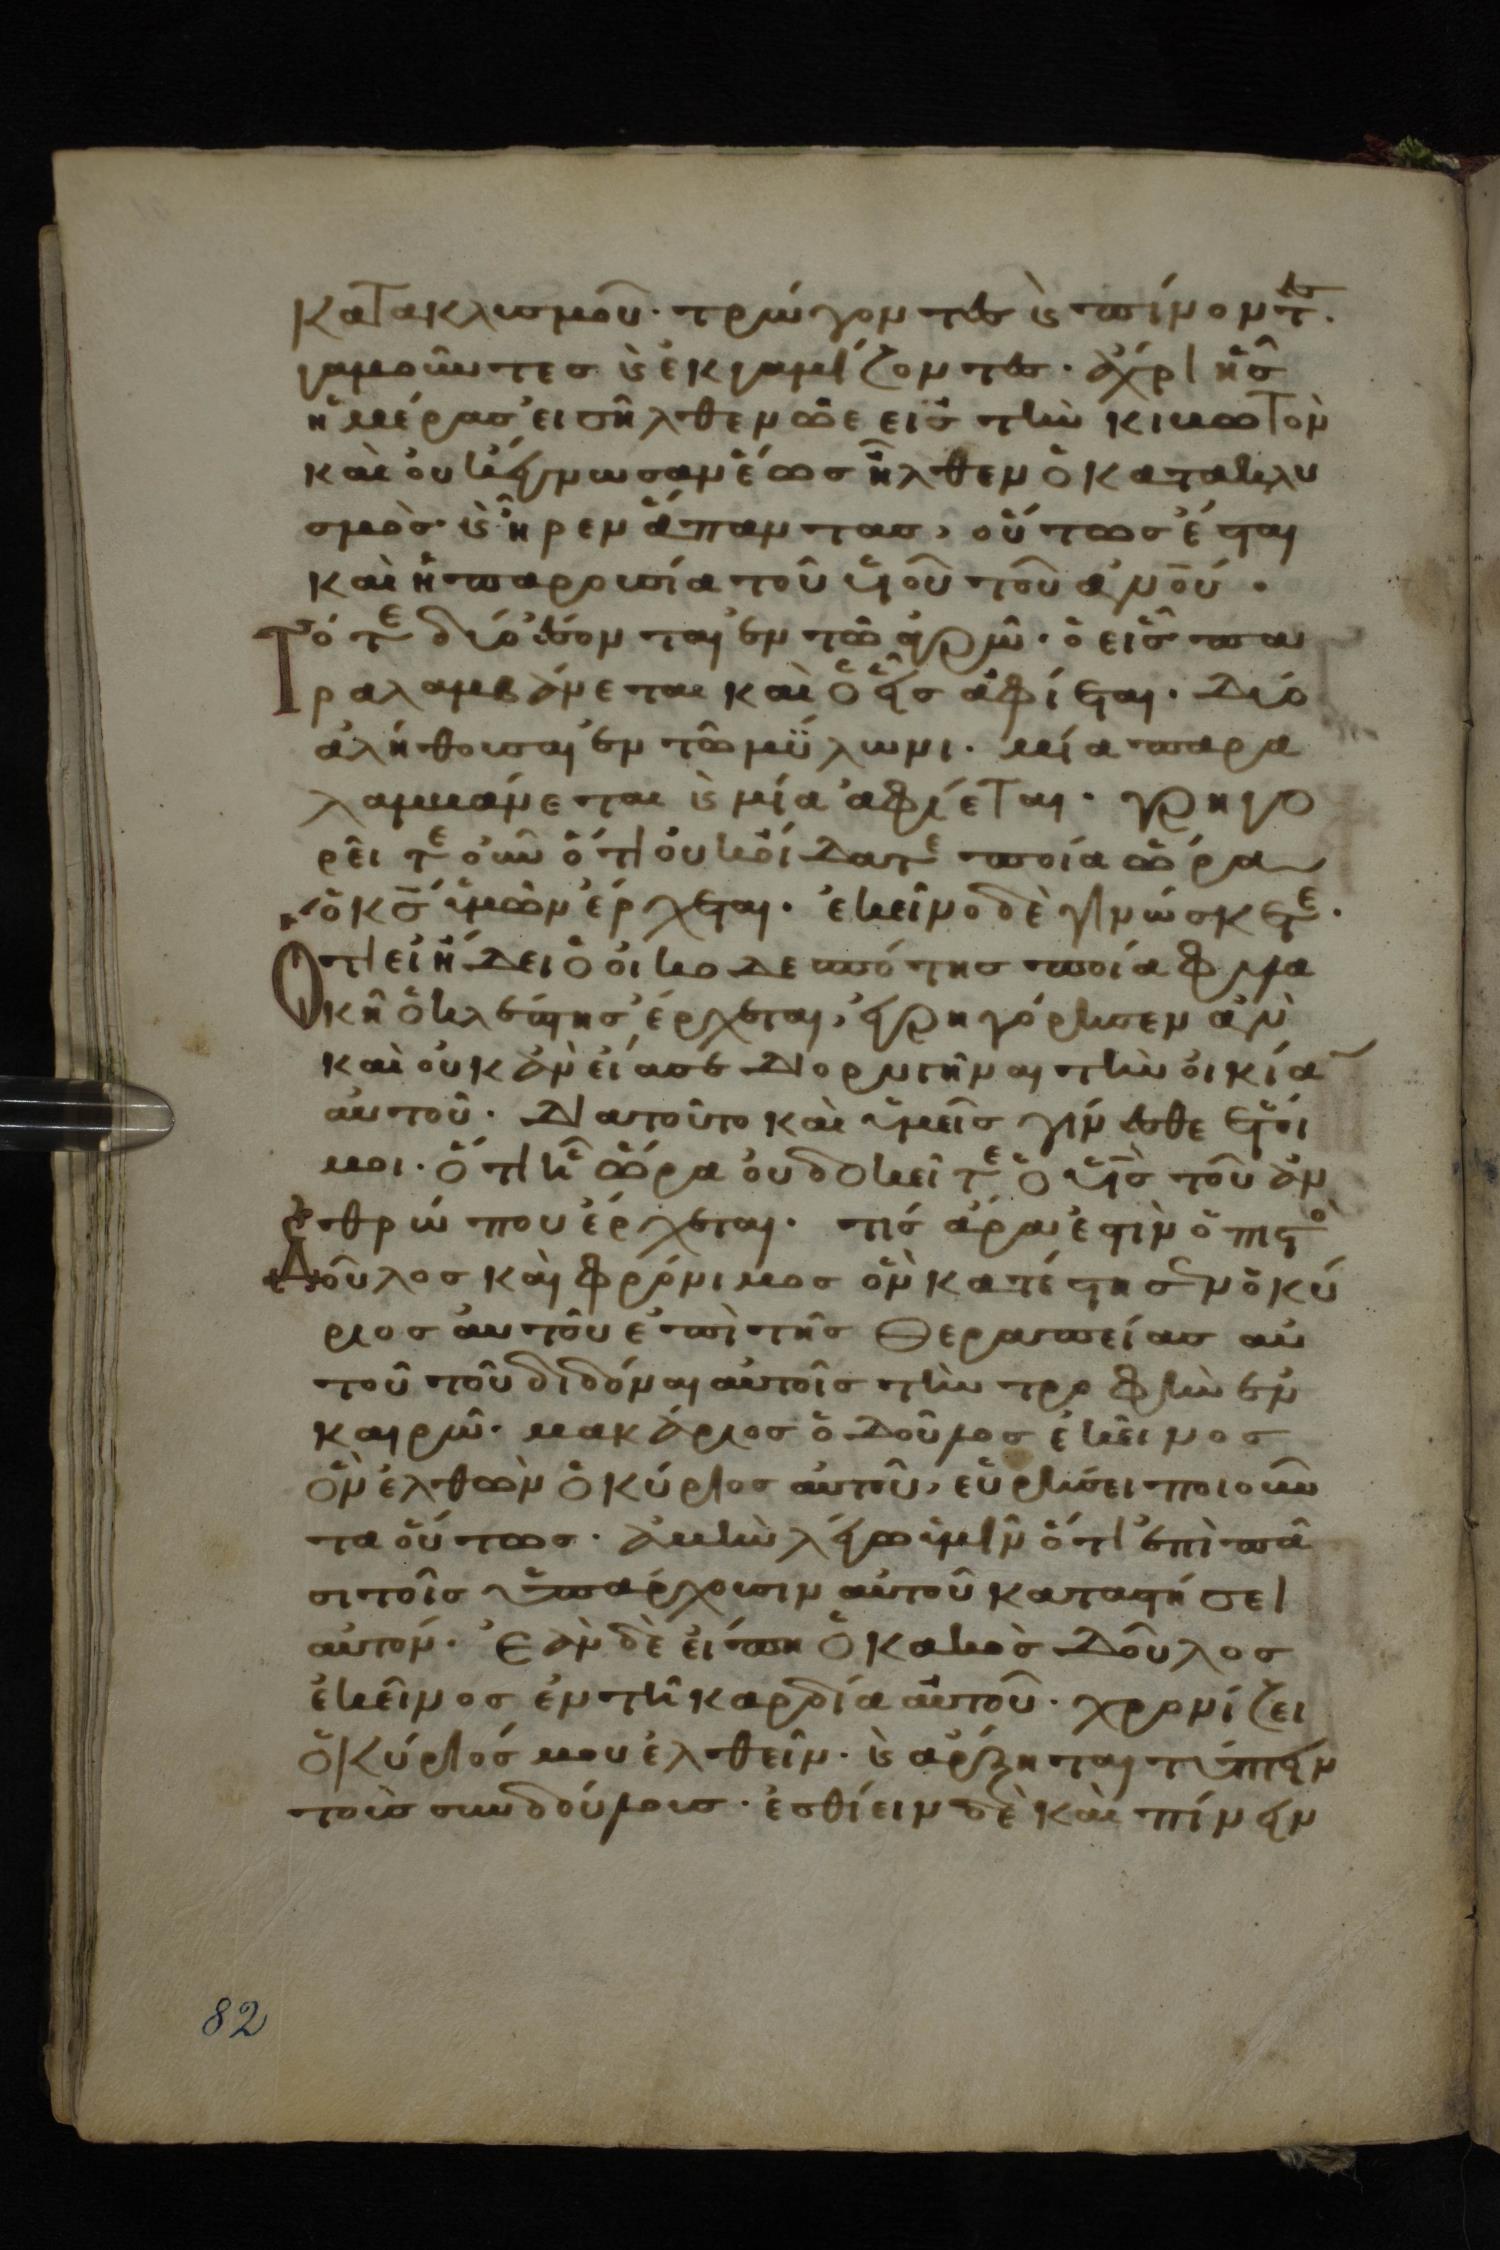 κατακλισμοῦ· τρώγοντες κὶ πίνοντες·
γαμοῦντες κὶ ἐκγαμίζοντες· ἄχρι ἧς
ἡμέρας εἰσῆλθεν νῶε εἰς τὴν κιβωτὸν
καὶ οὐκ ἔγνωσαν ἕως ἦλθεν ὁ κατακλυ
σμὸς· κὶ ἦρεν ἅπαντας, οὕτως ἔσται
καὶ ἡ παρουσία τοῦ υἱοῦ τοῦ ἀνου·
Τότε δύο ἔσονται ἐν τῶ ἀγρῶ· ὁ εἷς πα
ραλαμβάνεται καὶ ὁ εἷς ἀφίεται· Δύο
ἀλήθουσαι ἐν τῶ μύλωνι· μία παρα
λαμβάνεται κὶ μία ἀφίεται· γρηγο
ρεῖτε οὖν ὅτι οὐκ οἴδατε ποία ὥρα
ὁ κς ὑμῶν ἔρχεται· ἐκεῖνο δὲ γινώσκετε·
Ὅτι εἰ ἤδει ὁ οἰκοδεσπότης ποία φυλα
κῆ ὁ κλέπτης ἔρχεται, ἐγρηγόρησεν ἀν
καὶ οὐκ ἂν εἴασε διορυγῆναι τὴν οἰκίαν
αὐτοῦ· Διατοῦτο καὶ ὑμεῖς γίνεσθε ἕτοι
μοι· ὅτι ἧ ὥρα οὐ δοκεῖτε ὁ υἱὸς τοῦ ἀν
θρώπου ἔρχεται· τίς ἄρα ἐστὶν ὁ πιστὸ
Δοῦλος καὶ φρόνιμος ὃν κατέστησεν ὁ κύ
ριος αὐτοῦ ἐπὶ τῆς θεραπείας αὐ
τοῦ τοῦ διδόναι αὐτοῖς τὴν τροφὴν ἐν
καιρῶ· μακάριος ὁ δοῦλος ἐκεῖνος
ὃν ἐλθὼν ὁ κύριος αὐτοῦ, εὑρήσει ποιοῦν
τα οὕτως· ἀμὴν λέγω ὑμῖν ὅτι ἐπὶ πᾶ
σι τοῖς ὑπάρχουσιν αὐτοῦ καταστήσει
αὐτόν· Ἐὰν δὲ εἴπη ὁ κακὸς δοῦλος
ἐκεῖνος ἐν τῆ καρδία αὐτοῦ· χρονίζει
ὁ κύριός μου ἐλθεῖν· κὶ ἄρξηται τύπτειν
τοὺς συνδούλους· ἐσθίειν δὲ καὶ πίνειν
82